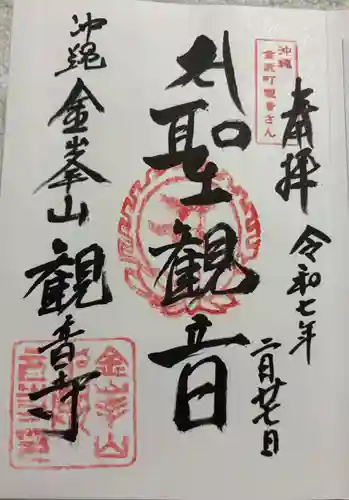 奉拝
令和七年
二月廿七日
沖縄
金武町観音さん
聖観音
沖縄
金峯山
観音寺